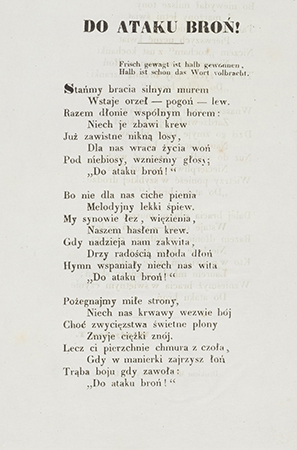 DO ATAKU BROŃ!
Frisch gewagt ist halb gewonnen,
Halb ist schon das Wort vollbracht.
Stańmy bracia silnym murem
Wstaje orzeł — pogoń — lew.
Razem dłonie wspólnym horem:
Niech je zbawi krew
Już zawistne nikną losy,
Dla nas wraca życia woń
Pod niebiosy, wznieśmy głosy;
„Do ataku broń!“
Bo nie dla nas ciche pienia
Melodyjny lekki śpiew.
My synowie łez, więzienia,
Naszem hasłem krew.
Gdy nadzieja nam zakwita,
Drzy radością młoda dłoń
Hymn wspaniały niech nas wita
„Do ataku broń!“
Pożegnajmy miłe strony,
Niech nas krwawy wezwie bój
Choć zwycięzstwa świetne plony
Zmyje ciężki znój.
Lecz ci pierzchnie chmura z czoła,
Gdy w manierki zajrzysz łoń
Trąba boju gdy zawoła:
„Do ataku broń!“